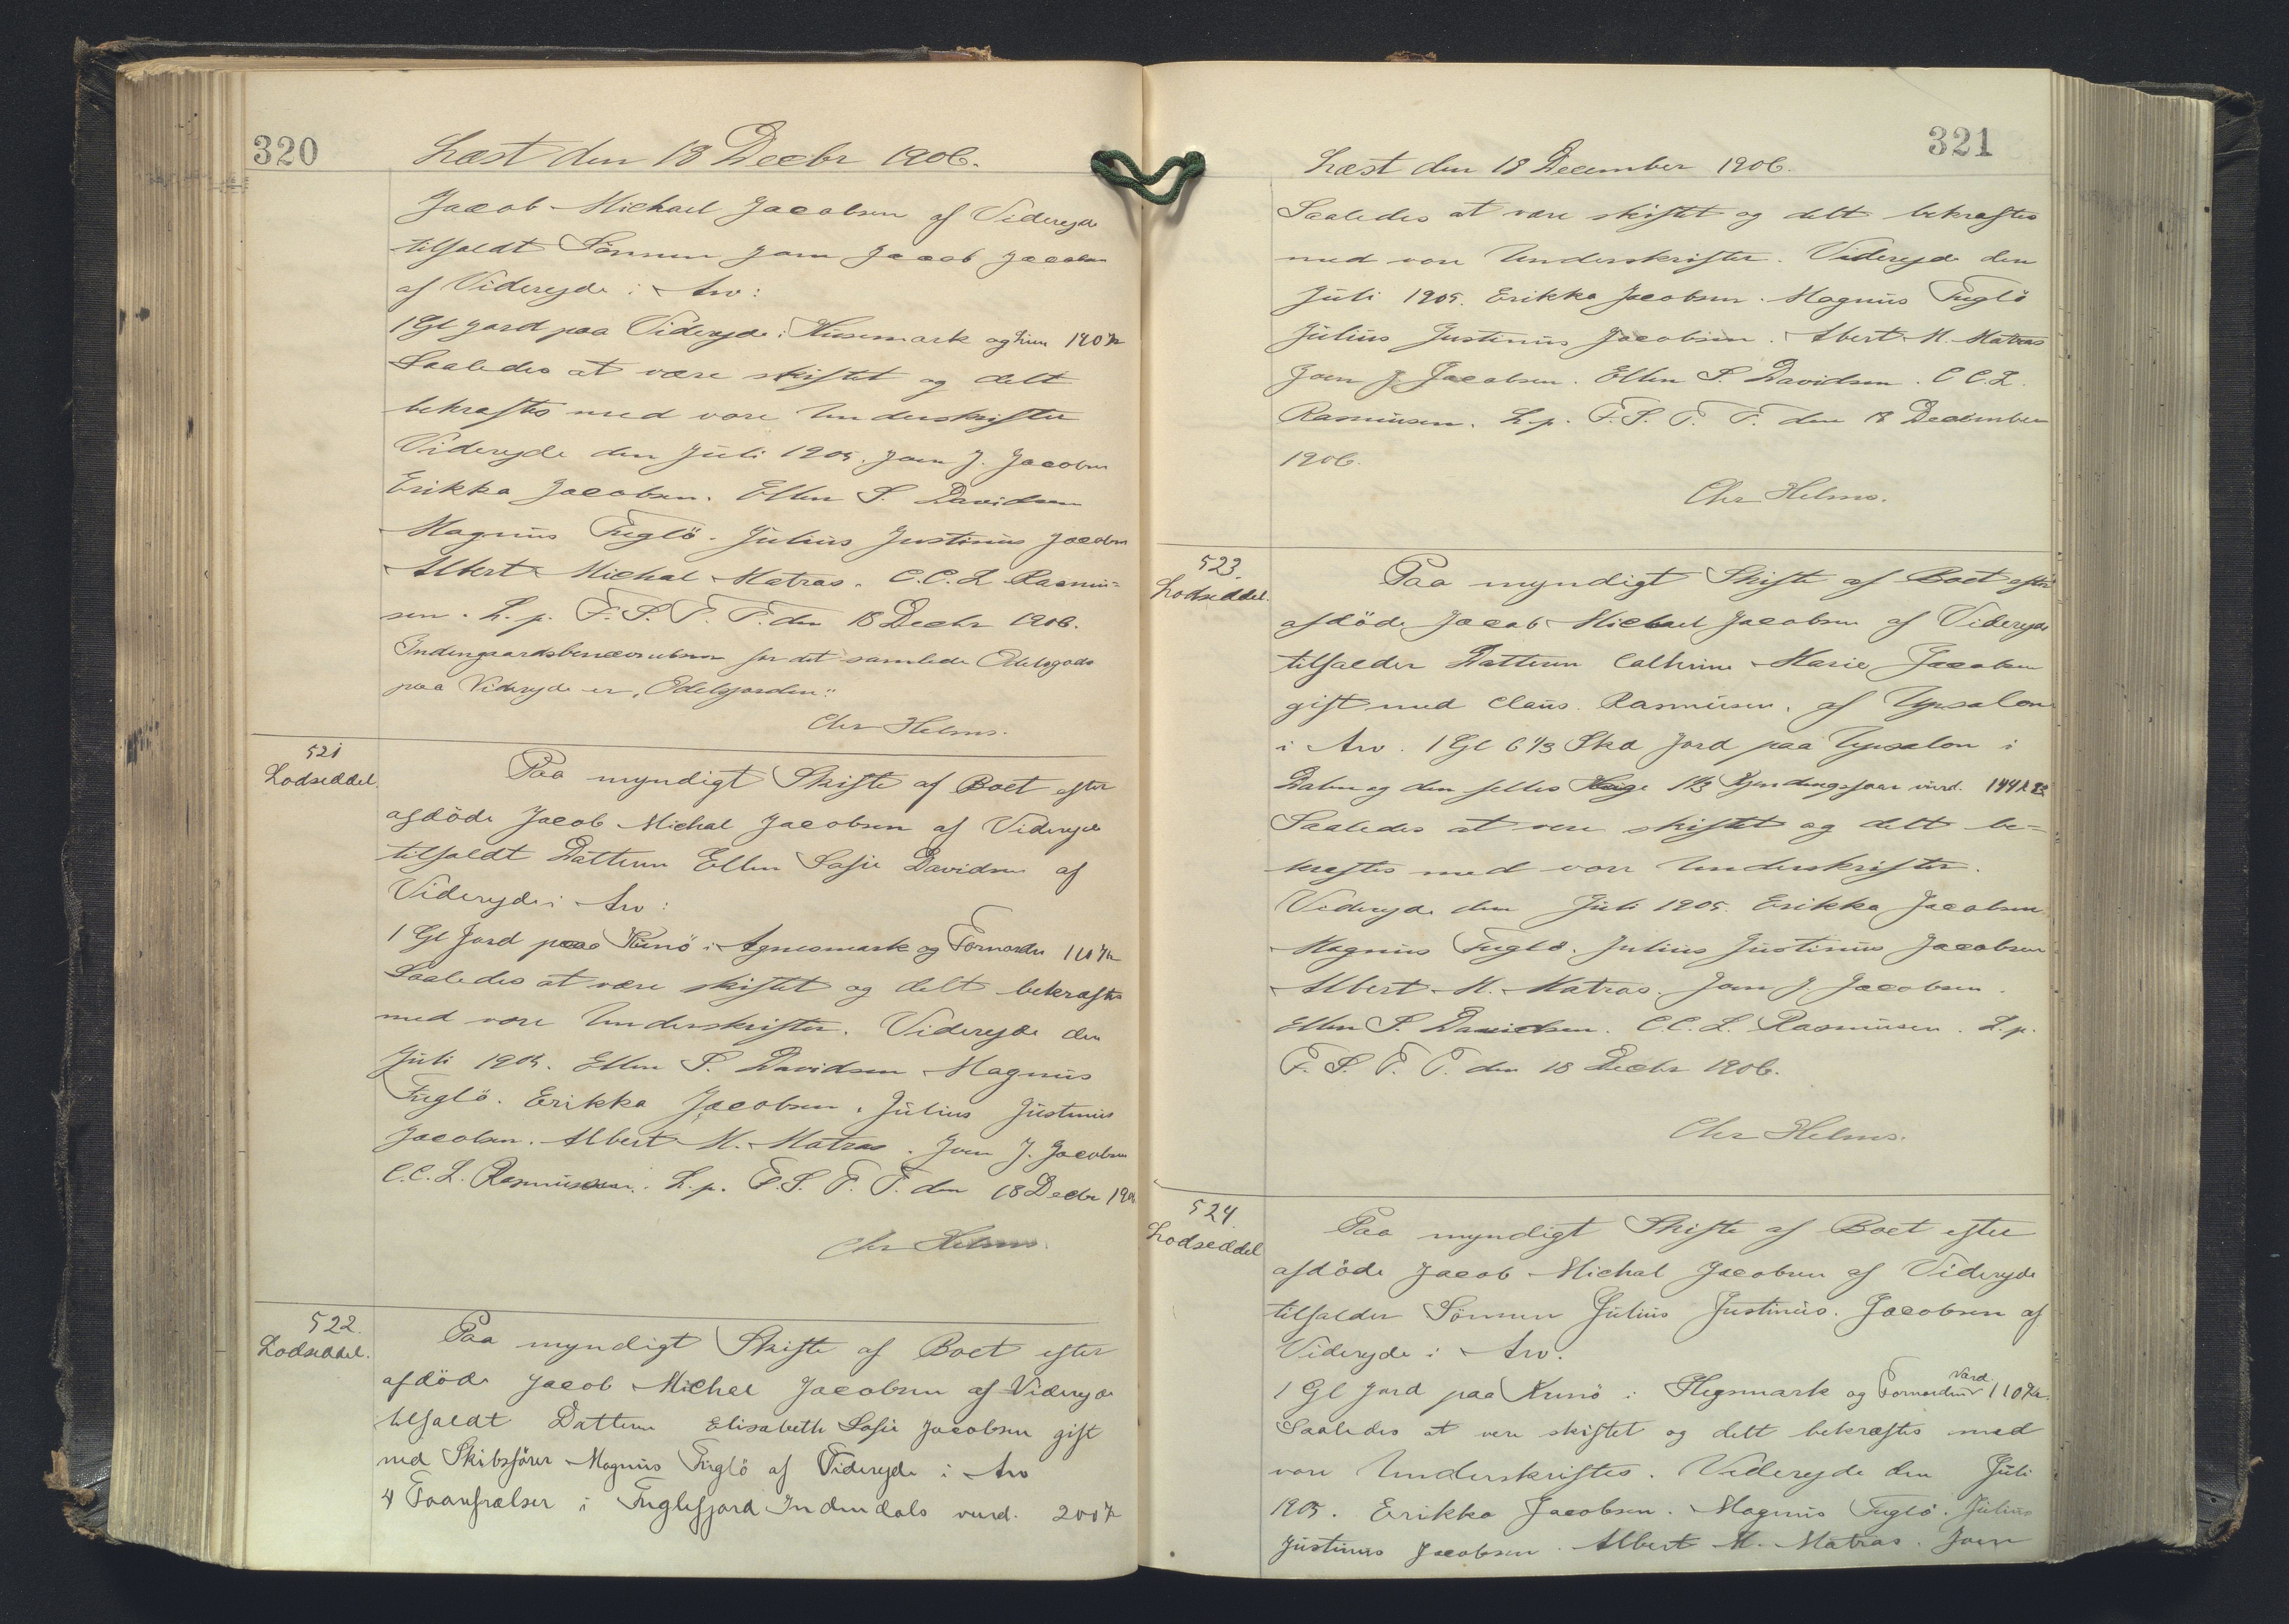 320
Læst den 18 Decbr 1906.
Jacob Michael Jacobsen af Videreyde
tilfaldt Sönnen Joen Jacob Jacobsen
af Videreyde i Arv:
1 Gl Jord paa Videreyde i Husemark og 190 Kr
Saaledes at være skiftet og delt
bekræftes med vore Underskrifter
Videreyde den Juli 1905. Joen J. Jacobsen
Erikka Jacobsen. Ellen S. Davidsen
Magnus Fuglö. Julius Justinus Jacobsen
Albert Michal Matras. C.C.L Rasmus=
sen. L.p. F.S.T.T. den 18 Decbr 1906.
Indengaardsbenævnelsen for det samlede Odelsgods
paa Videreyde er „Odelsjorden“
Chr Helms.
521
Lodseddel.
Paa myndigt Skifte af Boet efter
afdöde Jacob Michal Jacobsen af Videreyde
tilfaldt Datteren Ellen Sofie Davidsen af
Videreyde i Arv:
1 Gl Jord paa Kunö i Agnesmark og Fornorden 110 Kr
Saaledes at være skiftet og delt bekræftes
med vore Underskrifter. Videreyde den
Juli 1905. Ellen S. Davidsen Magnus
Fuglö. Erikka Jacobsen. Julius Justinus
Jacobsen. Albert M. Matras. Joen J. Jacobsen
C.C.L. Rasmussen. L.p. F.S.T.T. den 18 Decbr 1906.
Chr Helms.
522.
Lodseddel.
Paa myndigt Skifte af Boet efter
afdöde Jacob Michal Jacobsen af Videreyde
tilfaldt Datteren Elisabeth Sofie Jacobsen gift
med Skibsförer Magnus Fuglö af Videreyde i Arv
4 Faarsfælser i Fuglefjord Inden dals vurd. 200 Kr
321
Læst den 18 December 1906.
Saaledes at være skiftet og delt bekræftes
med vore Underskrifter. Videreyde den
Juli 1905. Erikka Jacobsen. Magnus Fuglö
Julius Justinus Jacobsen. Albert M. Matras
Joen J. Jacobsen. Ellen S. Davidsen. C C. L.
Rasmussen. L.p. F.S.T.T. den 18 December
1906.
Chr Helms.
523.
Lodseddel.
Paa myndigt Skifte af Boet efter
afdöde Jacob Michael Jacobsen af Videreyde
tilfalder Datteren Cathrine Marie Jacobsen
gift med Claus Rasmussen. af Upsalon
i Arv. 1 Gl 6 1/3 Skd Jord paa Upsalon i
Dalen og den felles Hauge 1 1/3 vurd. 144 Kr
Saaledes at være skiftet og delt be=
kræftes med vore Underskrifter.
Videreyde den Juli 1905. Erikka Jacobsen
Magnus Fuglö. Julius Justinus Jacobsen
Albert M. Matras. Joen J. Jacobsen.
Ellen S. Davidsen. C.C. L. Rasmussen. L.p.
F.S.T.T. den 18 Decbr 1906.
Chr Helms.
524.
Lodseddel
Paa myndigt Skifte af Boet efter
afdöde Jacob Michal Jacobsen af Videreyde
tilfalder Sönnen Julius Justinus. Jacobsen af
Videreyde i Arv.
1 Gl Jord paa Kunö i Hegsmark og Fornorden vurd. 110 Kr.
Saaledes at være skiftet og delt bekræftes med
vore Underskriftes. Videreyde den Juli
1905. Erikka Jacobsen. Magnus Fuglö. Julius
Justinus Jacobsen. Albert M. Matras. Joen